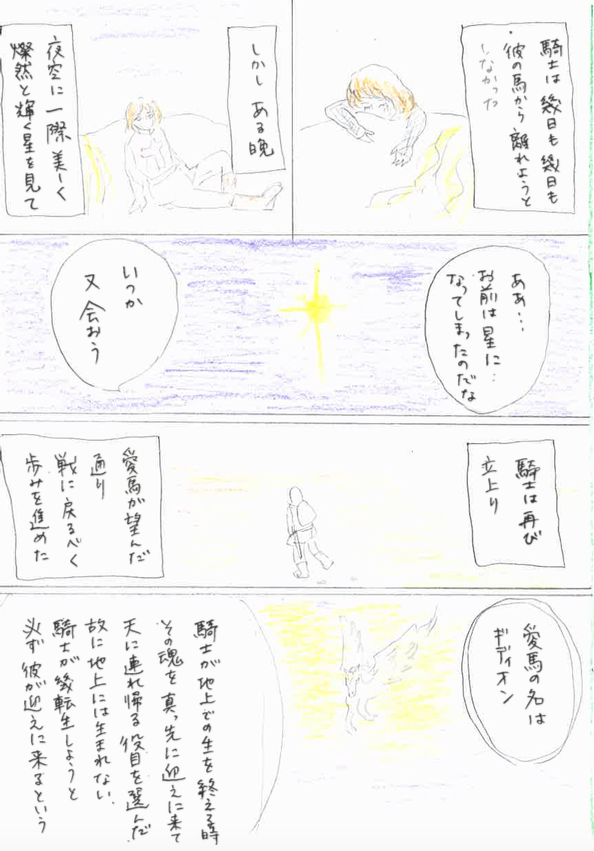 騎士は 幾日も 幾日も
彼の馬から 離れようと
しなかった
しかし ある晩
夜空に 一際 美しく
燦然と 輝く星を見て
ああ…
お前は星に…
なってしまったのだな
いつか
又 会おう
騎士は 再び
立上り
愛馬が望んだ
通り
戦に戻るべく
歩みを進めた
愛馬の名は
ギディオン
騎士が地上での生を終える時
その魂を真っ先に迎えに来て
天に連れ帰る役目を選んだ
故に地上には生まれない、
騎士が幾転生しようと
必ず彼が迎えに来るという